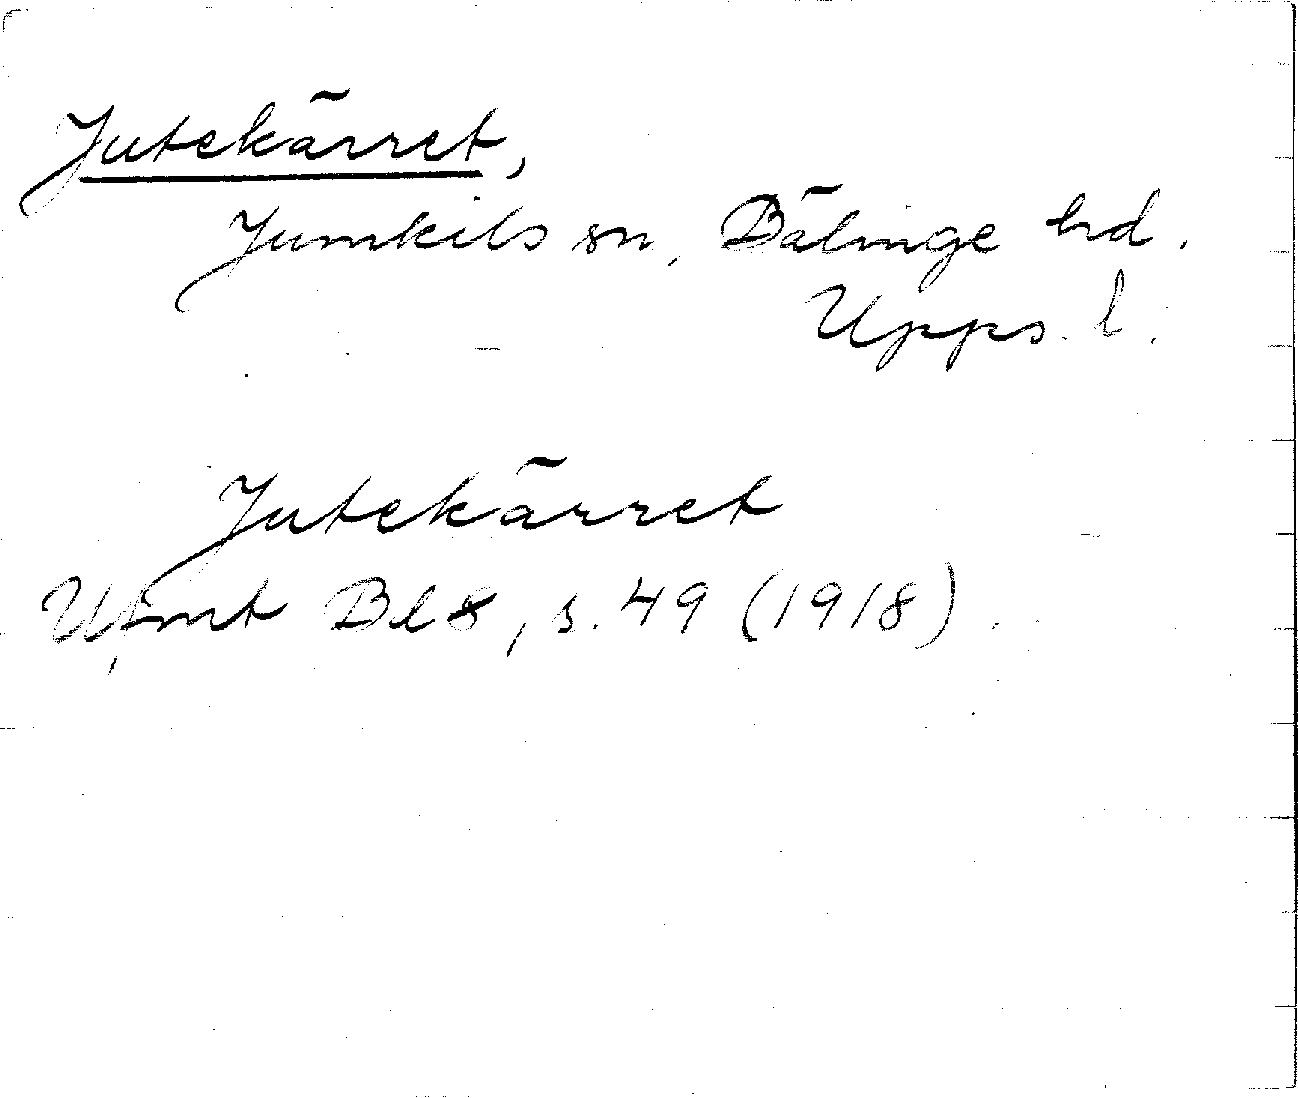 Jutekärret,
Jumkils sn, Bälinge hd.
Upps. l.
Jutekärret
Ufmt Bd 8, s. 49 (1918).